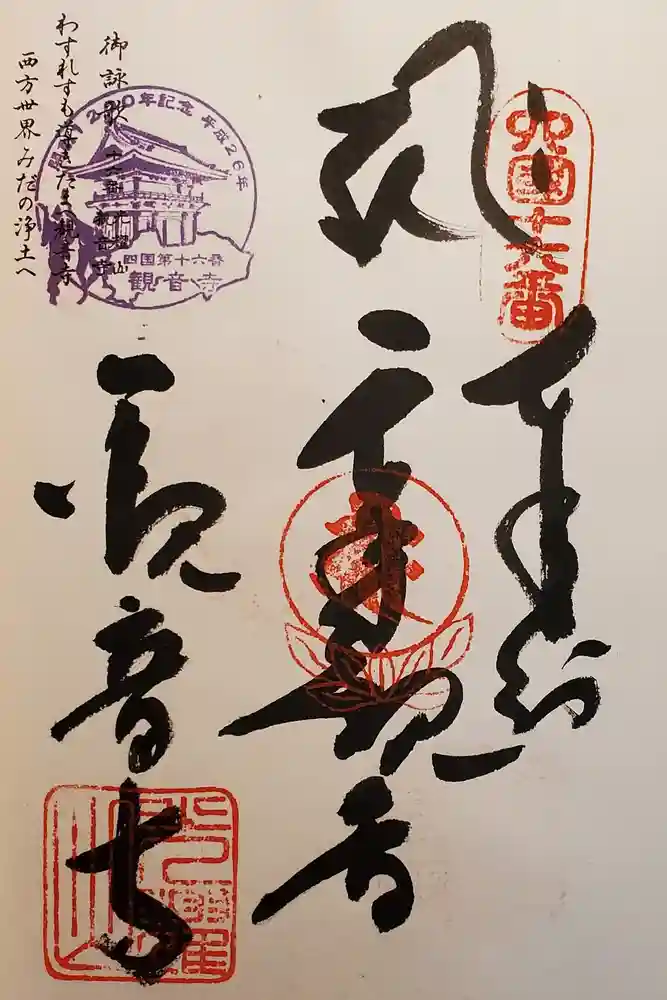 四國十六番
奉納
千手観音
観音寺
光耀山
御詠歌
わすれすも導きたまへ観音寺
西方世界みだの浄土へ
年記念 平成26年
四国第十六番
観音寺